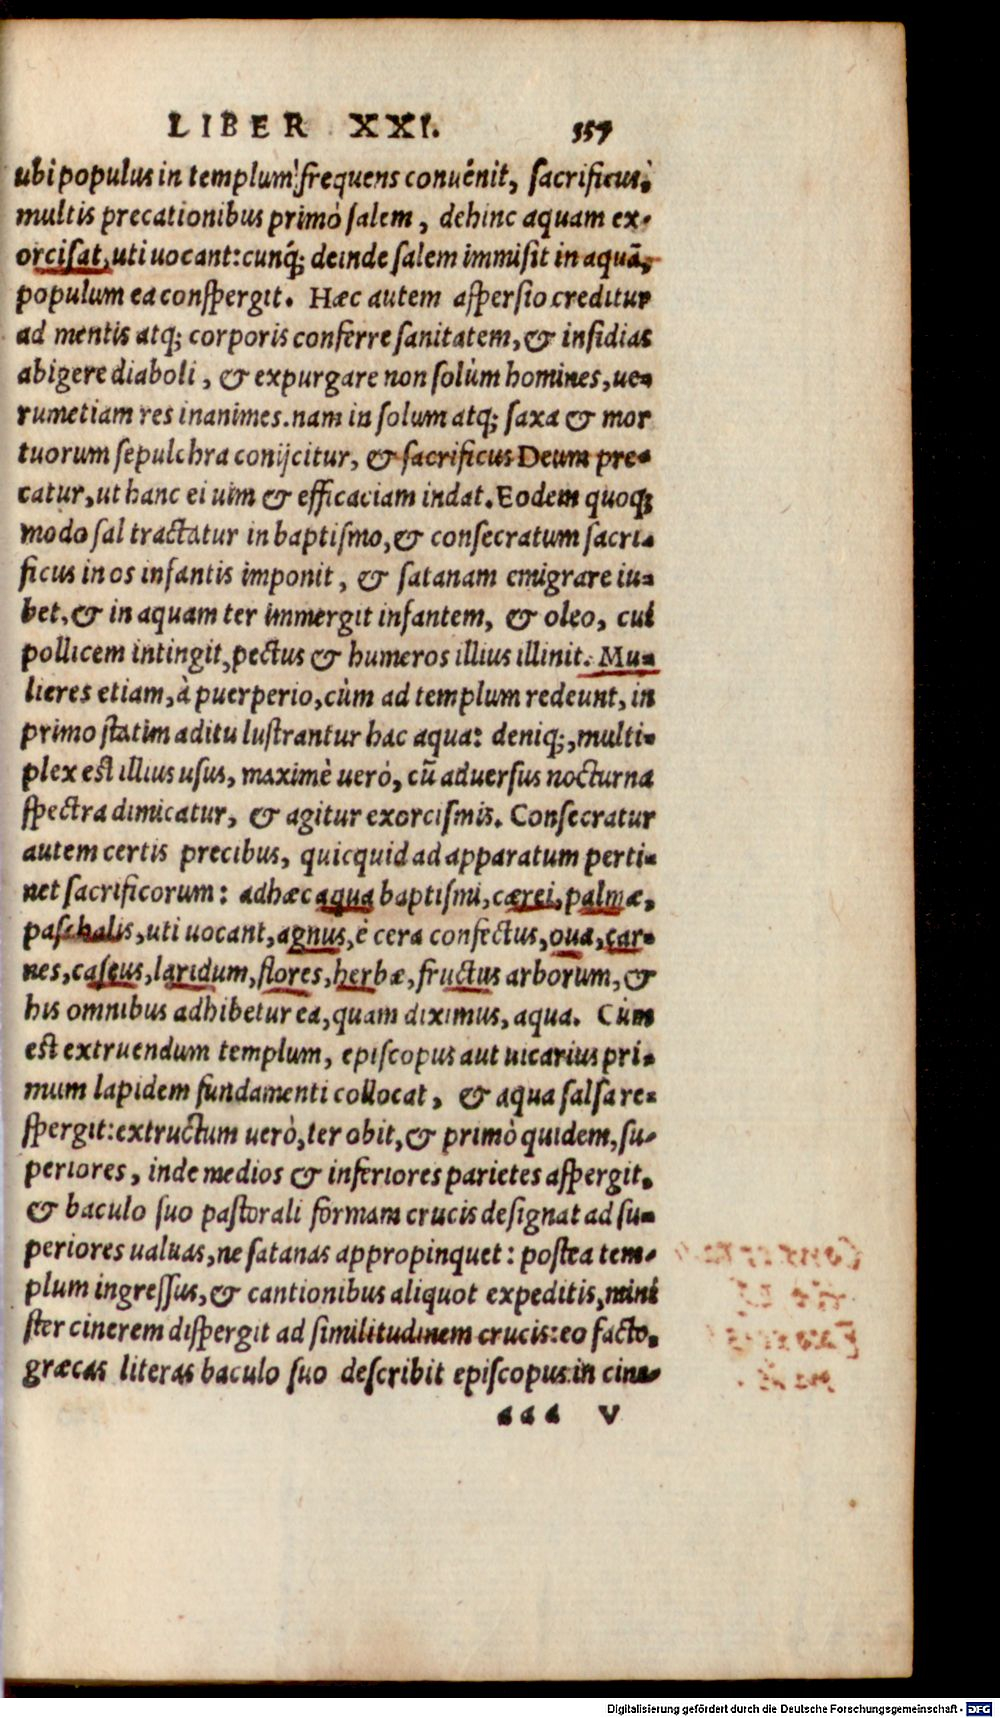 LIBER XXI. 357
ubi populus in templum frequens convenit, sacrificus,
multis precationibus primò salem, dehinc aquam ex-
orcisat, uti uocant: cunq; deinde salem immisit in aquã,
populum ea conspergit. Hæc autem aspersio creditur
ad mentis atq; corporis conferre sanitatem, & insidias
abigere diaboli, & expurgare non solùm homines, ue-
rumetiam res inanimes. nam in solum atq; saxa & mor
tuorum sepulchra conijcitur, & sacrificus Deum pre-
catur, ut hanc ei uim & efficaciam indat. Eodem quoq;
modo sal tractatur in baptismo, & consecratum sacri-
ficus in os infantis imponit, & satanam emigrare iu-
bet, & in aquam ter immergit infantem, & oleo, cui
pollicem intingit, pectus & humeros illius illinit. Mu-
lieres etiam, à puerperio, cùm ad templum redeunt, in
primo statim aditu lustrantur hac aqua: deniq;, multi-
plex est illius usus, maximè uerò, cũ aduersus nocturna
spectra dimicatur, & agitur exorcismis. Consecratur
autem certis precibus, quicquid ad apparatum perti-
net sacrificorum: adhæc aqua baptismi, cærei, palmæ,
paschalis, uti uocant, agnus, è cera confectus, oua, car-
nes, caseus, laridum, flores, herbæ, fructus arborum, &
his omnibus adhibetur ea, quam diximus, aqua. Cùm
est extruendum templum, episcopus aut uicarius pri-
mum lapidem fundamenti collocat, & aqua salsa re-
spergit: extructum uerò, ter obit, & primò quidem, su-
periores, inde medios & inferiores parietes aspergit,
& baculo suo pastorali formam crucis designat ad su-
periores ualuas, ne satanas appropinquet: postea tem-
plum ingressus, & cantionibus aliquot expeditis, mini
ster cinerem dispergit ad similitudinem crucis: eo facto,
græcas literas baculo suo describit episcopus in cine-
aaa v
Digitalisierung gefördert durch die Deutsche Forschungsgemeinschaft - DFG